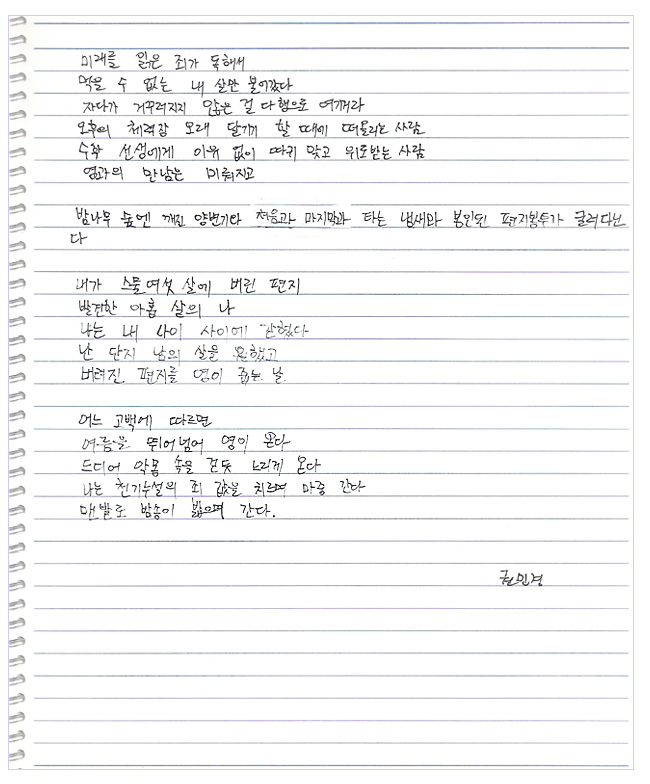 미래를 읽은 죄가 독해서
먹을 수 없는 내 살만 불어갔다
자다가 거꾸러지지 않는 걸 다행으로 여겨라
오후의 체력장 오래 달리기 할 때에 떠올리는 사람
수학 선생에게 이유 없이 따귀 맞고 위로받는 사람
영과의 만남은 미뤄지고
밤나무 숲엔 깨진 양변기와 처음과 마지막과 타는 냄새와 봉인된 편지봉투가 굴러다닌
다
내가 스물여섯 살에 버린 편지
발견한 아홉 살의 나
나는 내 사이 사이에 갇혔다
난 단지 남의 살을 원했고
버려진 편지를 영이 줍는 날
어느 고백에 따르면
여름을 뛰어넘어 영이 온다
드디어 악몽 속을 걷듯 느리게 온다
나는 천기누설의 죄 값을 치르며 마중 간다
맨발로 밤송이 밟으며 간다.
권민경